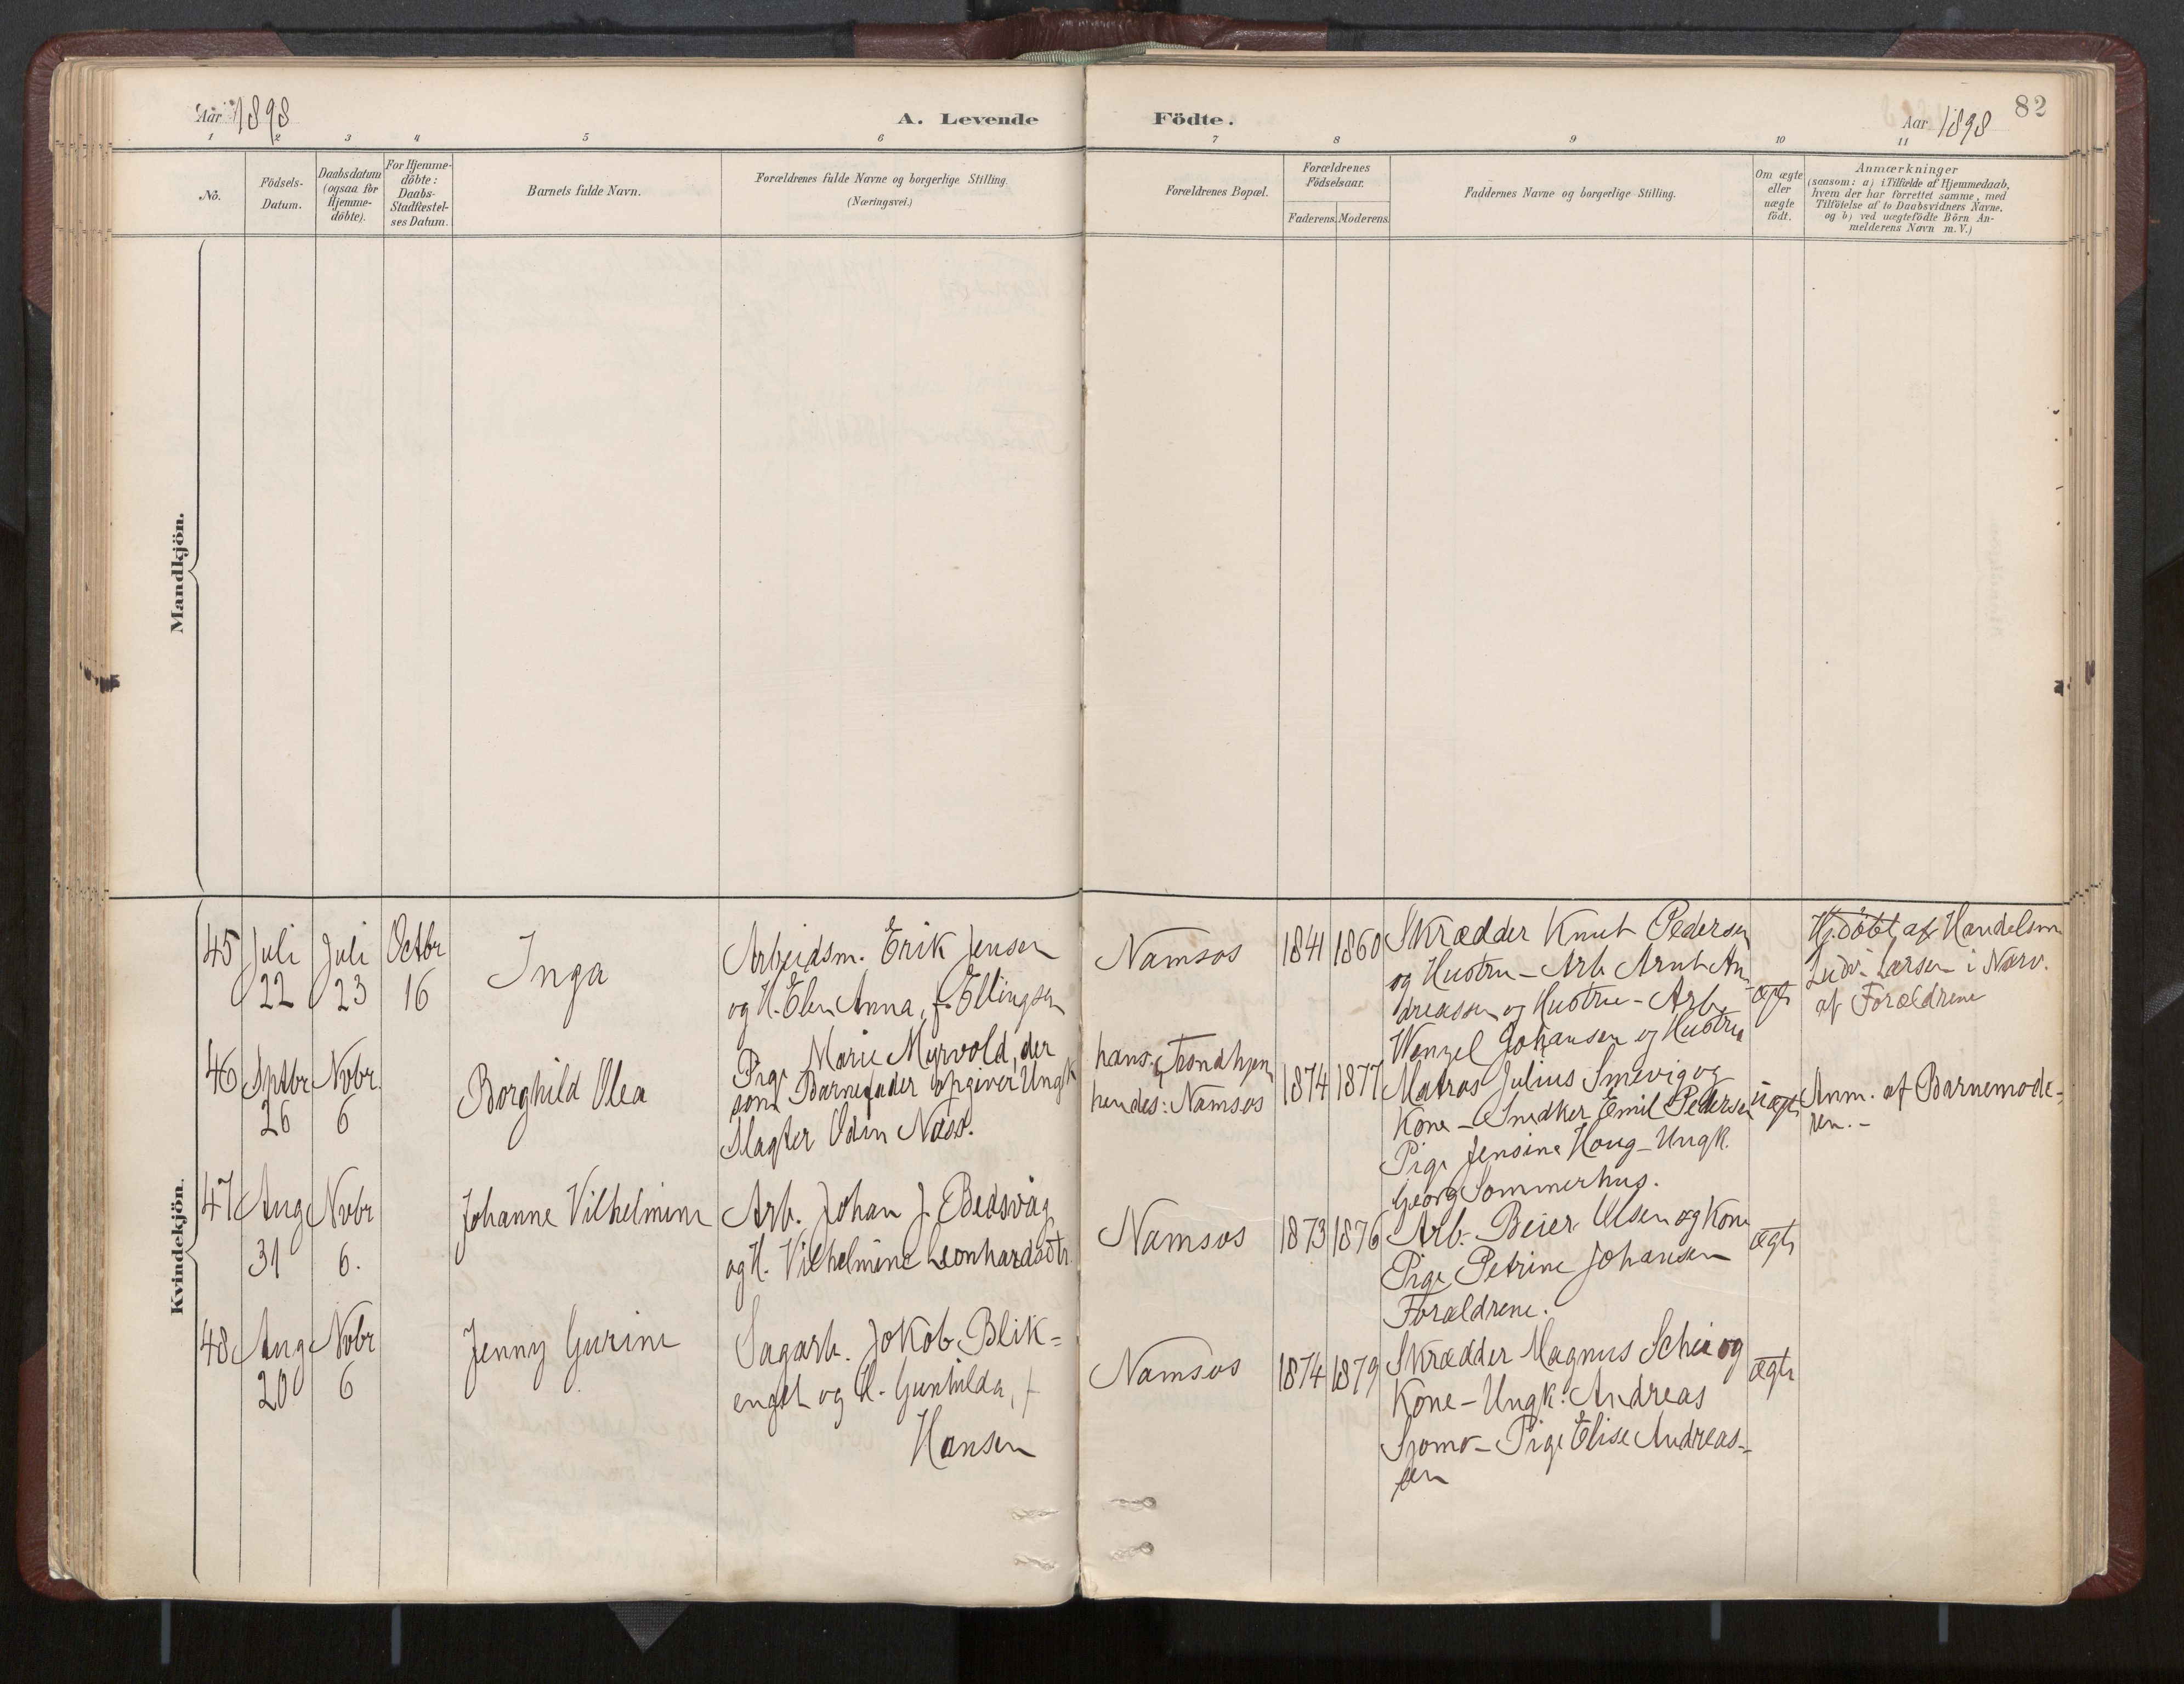 Aar 1898
A. Levende
Födte.
Aar 1898
82
1 2 3 4 5 6 7 8 9 10 11
No.
Födsels-
Datum.
Daabsdatum
(ogsaa for
Hjemme-
döbte).
For Hjemme-
döbte:
Daabs-
Stadfæstel-
ses Datum.
Barnets fulde Navn.
Forældrenes fulde Navne og borgerlige Stilling.
(Næringsvei.)
Forældrenes Bopæl.
Forældrenes
Födselsaar.
Faderens. Moderens.
Faddernes Navne og borgerlige Stilling.
Om ægte
eller
uægte
födt.
Anmærkninger
(saasom: a) i Tilfælde af Hjemmedaab,
hvem der har forrettet samme, med
Tilföielse af to Daabsvidners Navne.
og b) ved uægtefödte Börn An-
melderens Navn m. V.)
Mandkjön.
Kvindekjön.
45
Juli
22
Juli
23
Octbr
16
Inga
Arbeidsm. Erik Jensen
og H. Elen Anna, f. Ellingsen
Namsos
1841
1860
Skrædder Knut Pedersen
og Hustru - Arb Arnt An-
dreassen og Hustru - Arb.
Wenzel Johansen og Hustru
ægte
Hj.döbt af Handelsm
Ludv. Larsen i Nærv.
af Forældrene
46
Sptbr
26
Novbr.
6
Borghild Olea
Pige Marie Myrvold, der
som Barnefader opgiver Ungk
Slagter Odin Næss.
hans: Trondhjem
hendes: Namsos
1874
1877
Matros Julius Smevig og
Kone - Snedker Emil Pedersen
Pige Jensine Haug - Ungk.
Georg Sommerhus.
uægte
Anm. af Barnemode-
ren. -
47
Aug
31
Novbr
6.
Johanne Vilhelmine
Arb. Johan J. Bedsvåg
og H. Vilhelmine Leonhardsdtr.
Namsos
1873
1876
Arb. Beier Olsen og Kone
Pige Petrine Johansen
Forældrene.
ægte
48
Aug
20
Novbr
6
Jenny Gurine
Sagarb. Jokob Blik=
engst og H. Gunhilda, f
Hansen
Namsos
1874
1879
Skrædder Magnus Schei og
Kone - Ungk. Andreas
Sjomo - Pige Elise Andreas-
sen
ægte